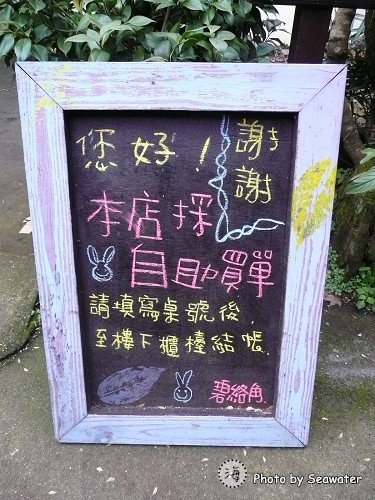 您好！
謝謝
本店採
自助買單
請填寫桌號後
至樓下櫃檯結帳.
碧絡角
海 Photo by Seawater